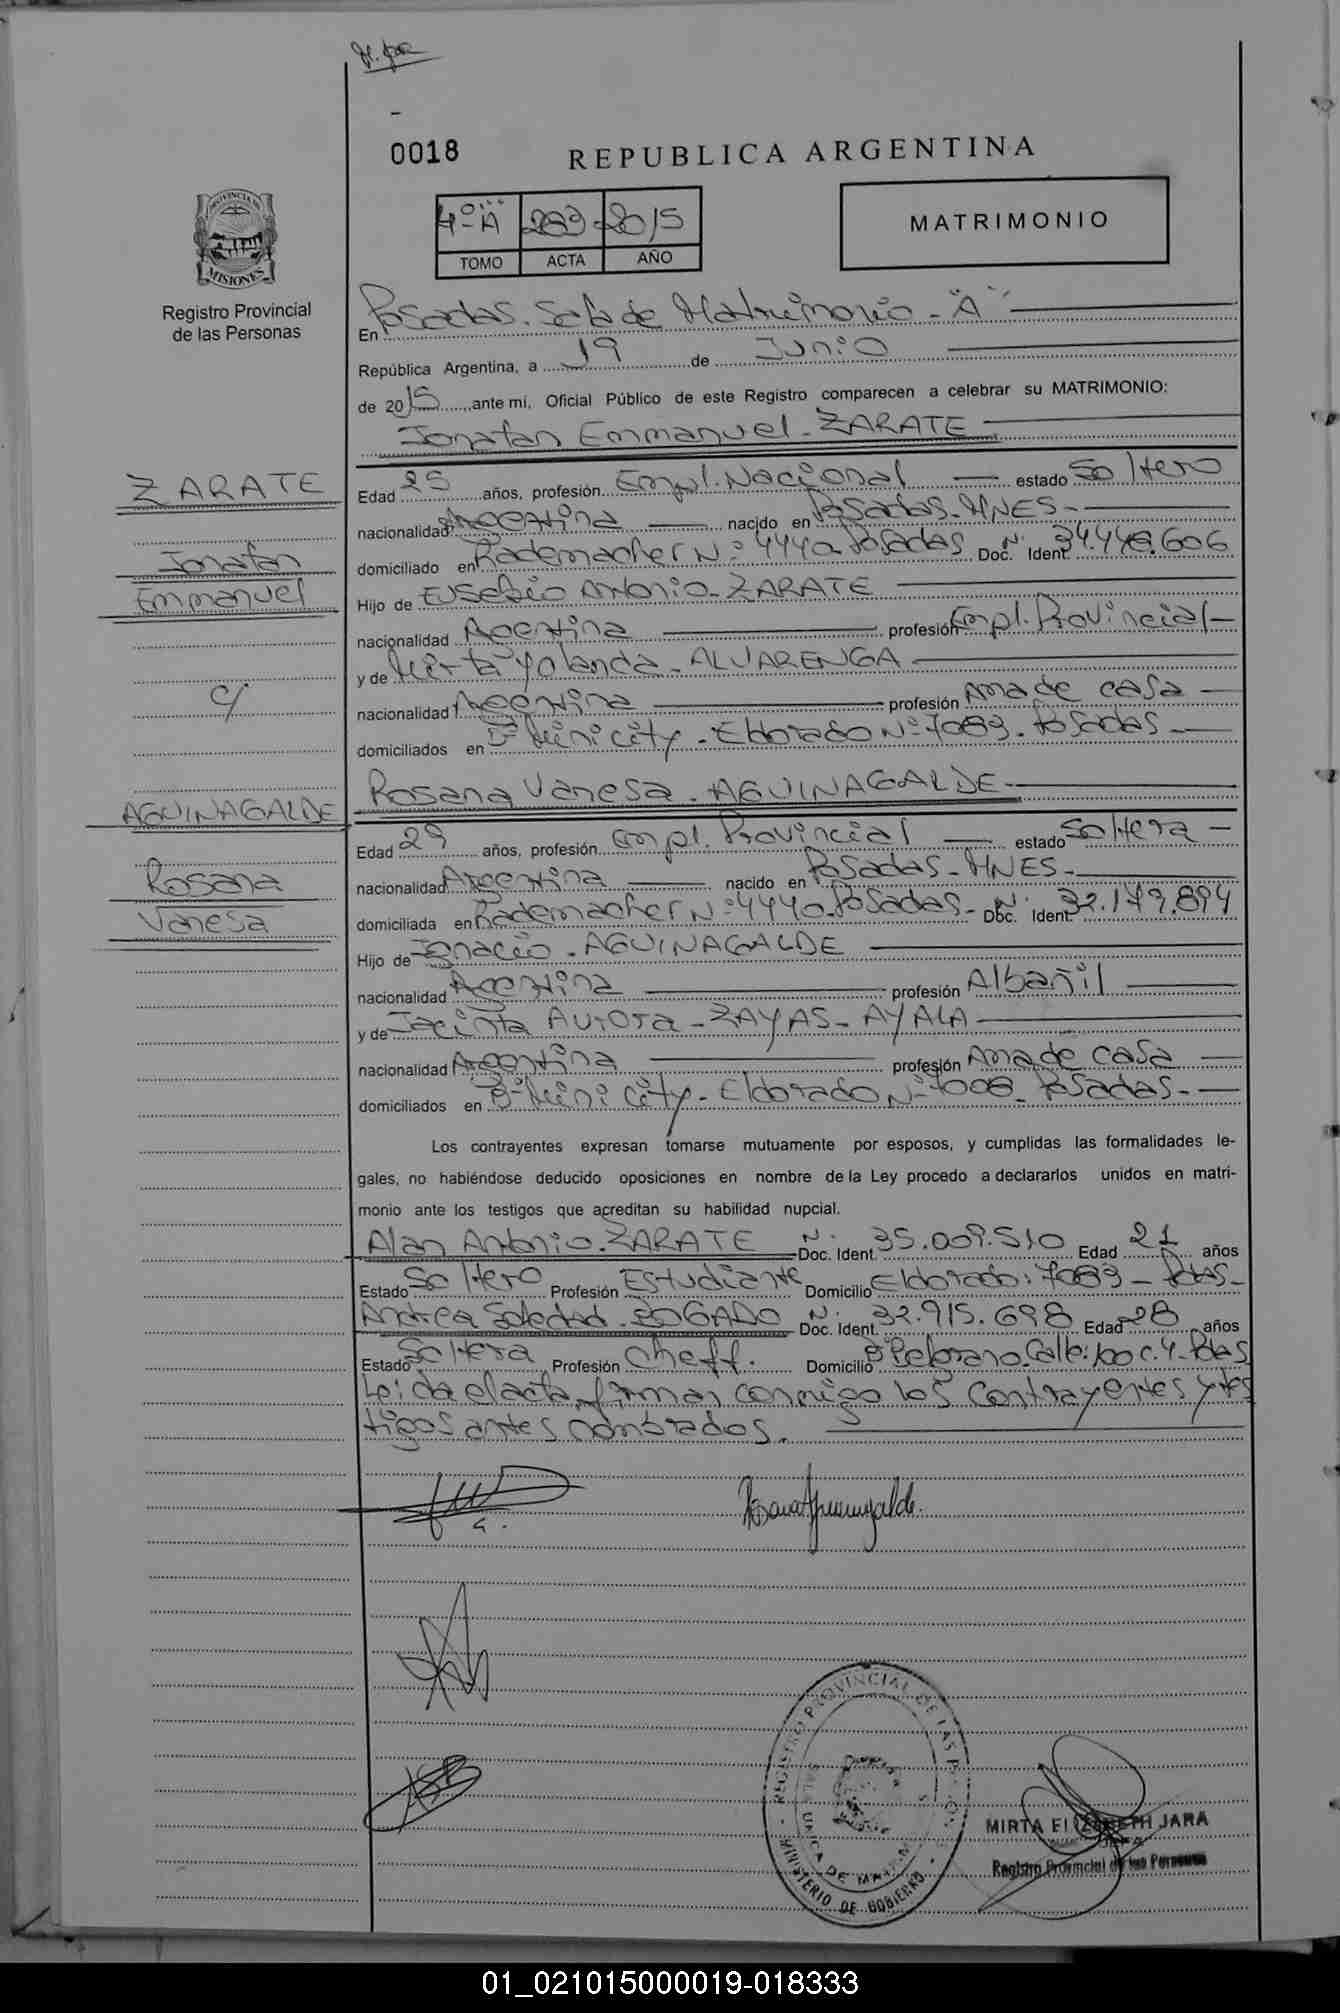 0018
REPUBLICA ARGENTINA
4º "A" 289 2015
TOMO ACTA AÑO
MATRIMONIO
PROVINCIA DE
MISIONES
Registro Provincial
de las Personas
En Posadas. Sala de Matrimonio - "A"
República Argentina, a 19 de Junio
de 2015 ante mi, Oficial Público de este Registro comparecen a celebrar su MATRIMONIO:
Jonatan Emmanuel - ZARATE
ZARATE
Jonatan
Emmanuel
c/
AGUINAGALDE
Rosana
Vanesa
Edad 25 años, profesión Empl. Nacional estado Soltero
nacionalidad Argentina nacido en Posadas - MNES -
domiciliado en Rademacher Nº 4440. Posadas Doc. Ident. Nº 34.448.606
Hijo de Eusebio Antonio - ZARATE
nacionalidad Argentina profesión Empl. Provincial
y de Mirta Yolanda - ALVARENGA
nacionalidad Argentina profesión Ama de casa
domiciliados en Bº Mini city - Eldorado Nº 7089. Posadas
Rosana Vanesa - AGUINAGALDE
Edad 29 años, profesión Empl. Provincial estado Soltera
nacionalidad Argentina nacido en Posadas - MNES -
domiciliada en Rademacher Nº 4440. Posadas - Doc. Ident. Nº 32.179.894
Hijo de Ignacio - AGUINAGALDE
nacionalidad Argentina profesión Albañil
y de Jacinta Aurora - ZAYAS - AYALA
nacionalidad Argentina profesión Ama de casa
domiciliados en Bº Mini City - Eldorado Nº 7008. Posadas -
Los contrayentes expresan tomarse mutuamente por esposos, y cumplidas las formalidades le-
gales, no habiéndose deducido oposiciones en nombre de la Ley procedo a declararlos unidos en matri-
monio ante los testigos que acreditan su habilidad nupcial.
Alan Antonio - ZARATE Doc. Ident. Nº 35.009.510 Edad 21 años
Estado Soltero Profesión Estudiante Domicilio Eldorado: 7089 - Pdas -
Andrea Soledad - SOGADO Doc. Ident. Nº 32.915.698 Edad 28 años
Estado Soltera Profesión Cheff. Domicilio Bº Belgrano. Calle: 100 c. 4 - Pdas
Leída el acta, firman conmigo los contrayentes y tes
tigos antes nombrados.
REGISTRO PROVINCIAL DE LAS
MINISTERIO DE GOBIERNO
MIRTA ELIZABETH JARA
JEFA
Registro Provincial de las Personas
01_021015000019-018333